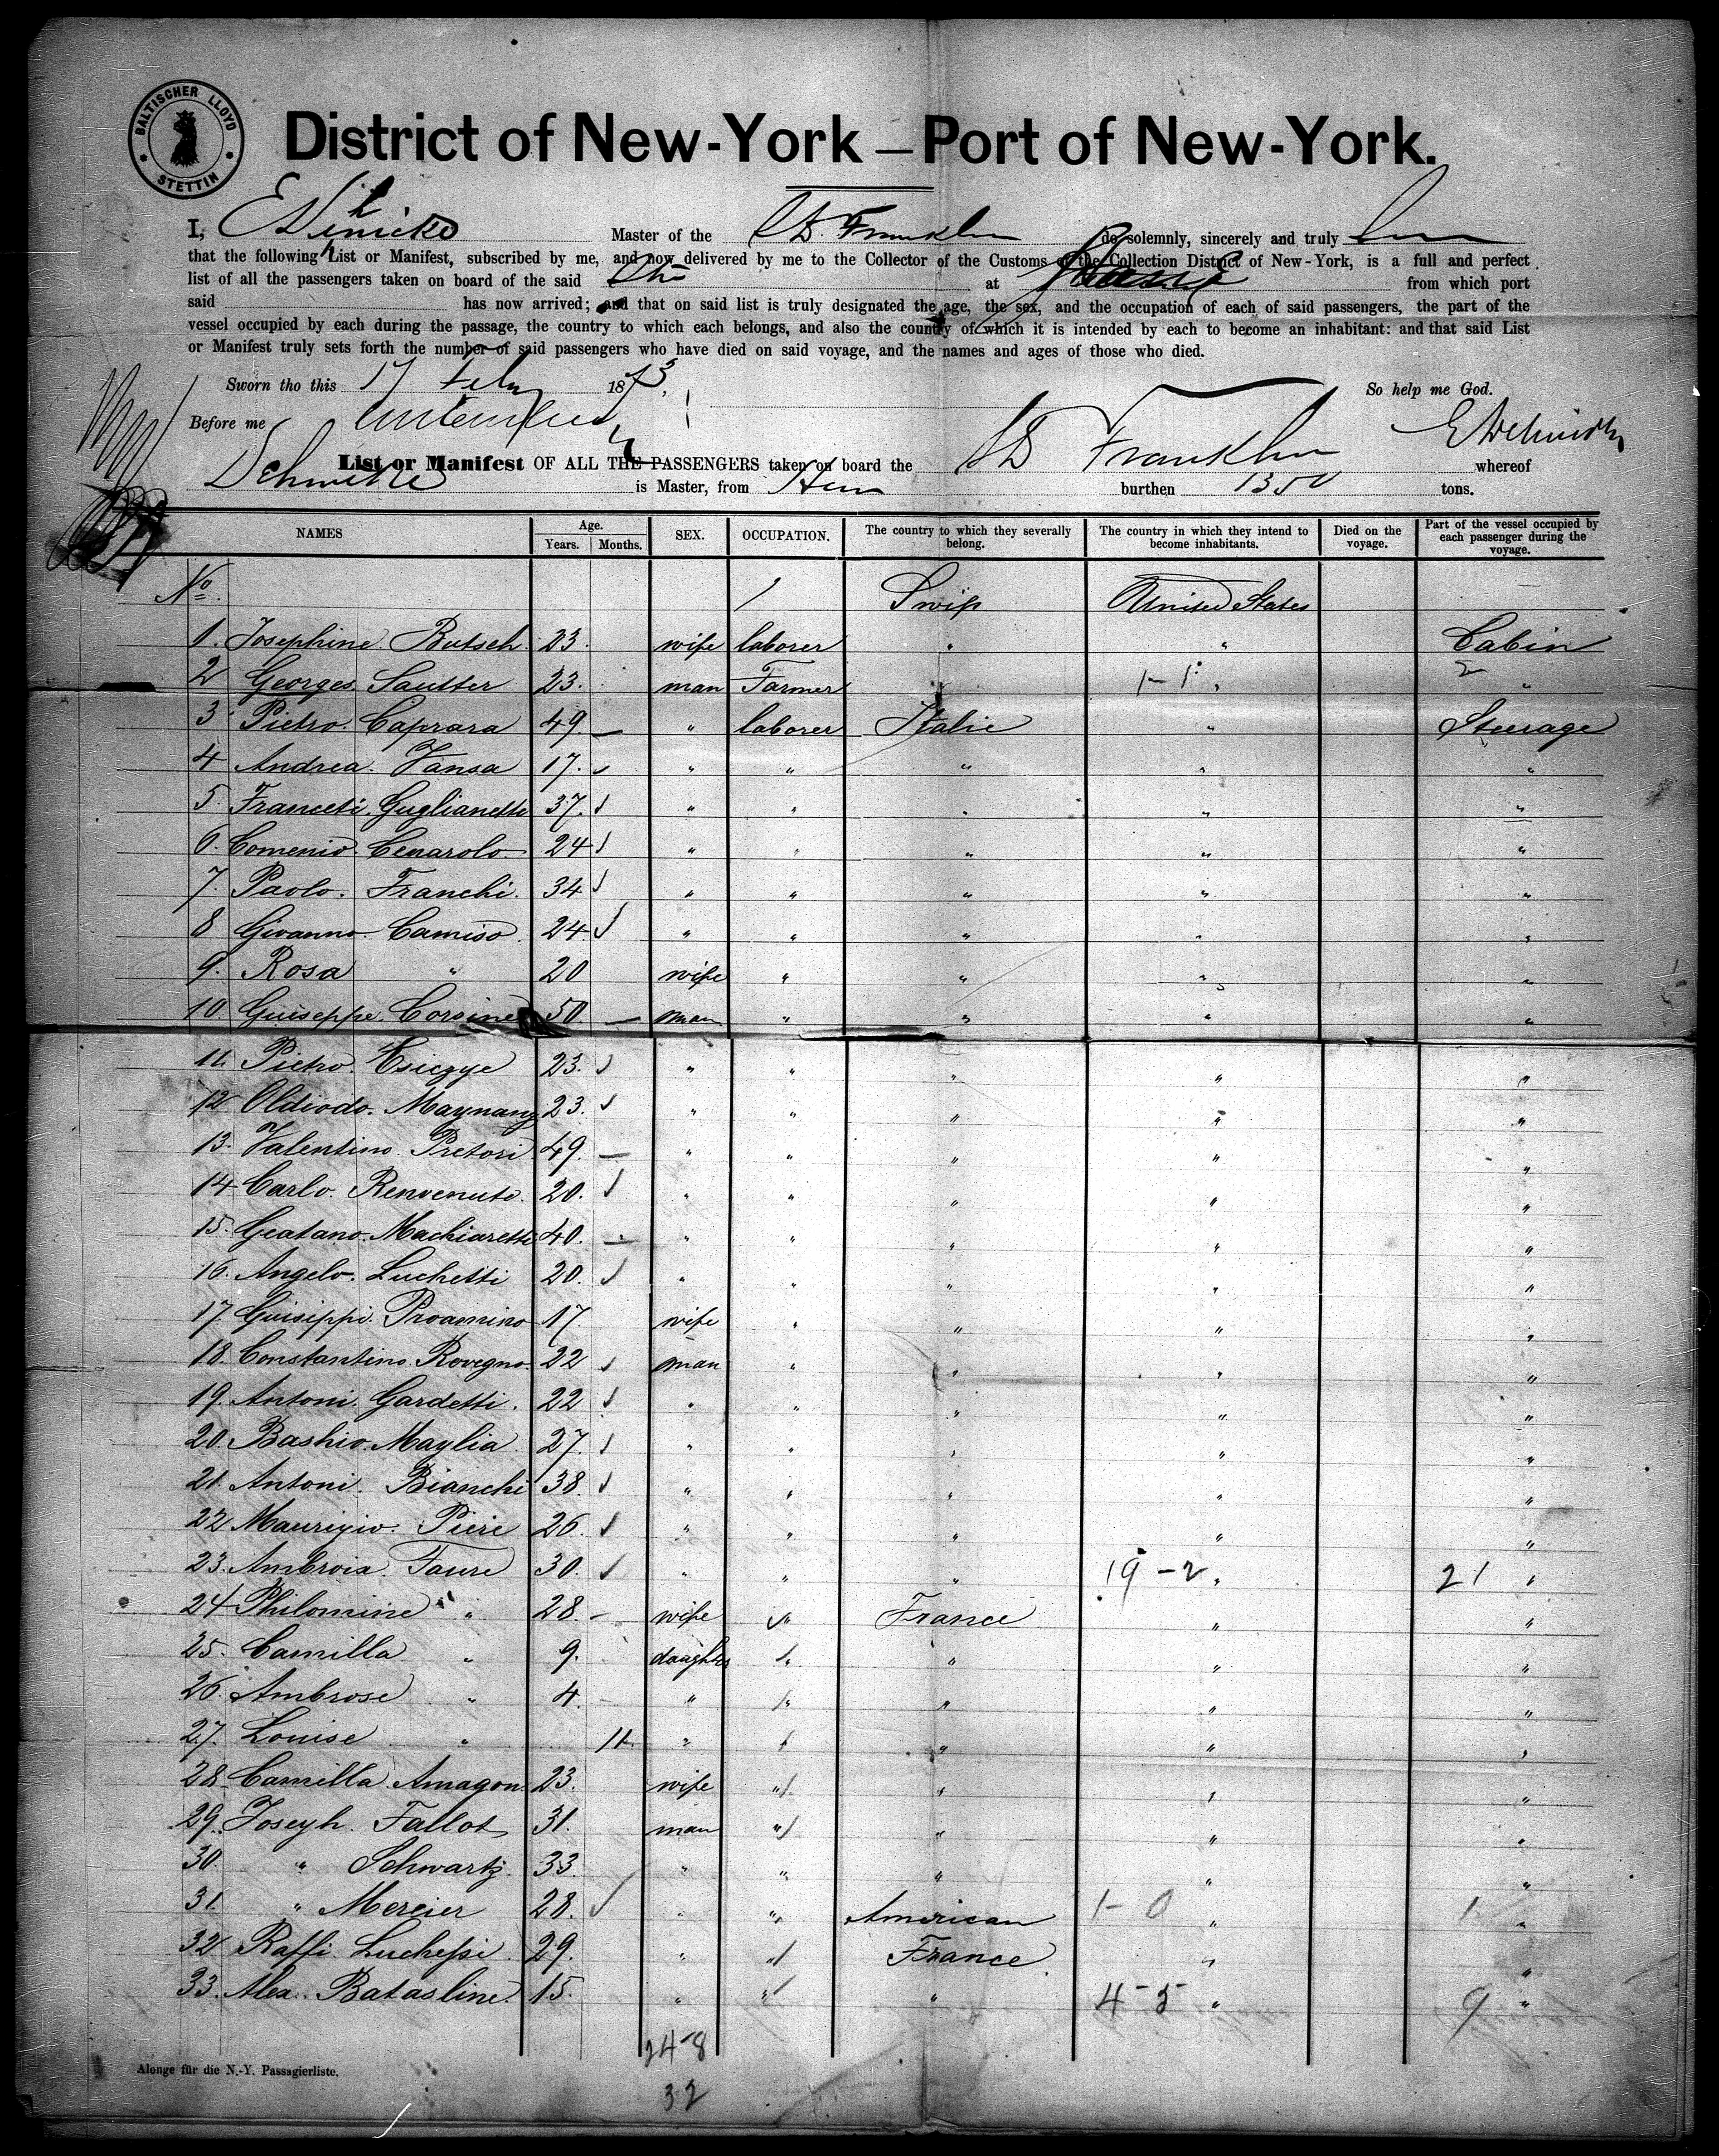 BALTISCHER LLOYD
STETTIN
District of New-York – Port of New-York.
I, Master of the SS. Franklin do solemnly, sincerely and truly
that the following List or Manifest, subscribed by me, and now delivered by me to the Collector of the Customs of the Collection District of New-York, is a full and perfect
list of all the passengers taken on board of the said at from which port
said has now arrived; and that on said list is truly designated the age, the sex, and the occupation of each of said passengers, the part of the
vessel occupied by each during the passage, the country to which each belongs, and also the country of which it is intended by each to become an inhabitant: and that said List
or Manifest truly sets forth the number of said passengers who have died on said voyage, and the names and ages of those who died.
Sworn tho this 17 Feby 1873, So help me God.
Before me
List or Manifest OF ALL THE PASSENGERS taken on board the SS Franklin whereof
is Master, from burthen 1350 tons.
NAMES Age. Years. Months. SEX. OCCUPATION. The country to which they severally belong. The country in which they intend to become inhabitants. Died on the voyage. Part of the vessel occupied by each passenger during the voyage.
No. Swiss United States
1. Josephine Butsch 23. wife laborer " " Cabin
2 Georges Sautter 23. man Farmer 1-1 " 2 "
3 Pietro Caprara 49. — " laborer Italie " Steerage
4 Andrea Vansa 17. " " " " "
5. Franceti Guglianetti 37. " " " " "
6. Comenio Cenarolo 24 " " " " "
7. Paolo Franchi 34 " " " " "
8 Givanno Camiso 24 " " " " "
9. Rosa " 20 wife " " " "
10. Guiseppe Corsine 50 — man " " " "
11. Pietro 23. " " " " "
12 Oldiodo Maynang 23. " " " " "
13. Valentino Pretori 49. — " " " " "
14 Carlo Renvenuto 20. " " " " "
15. Geatano Machiaretti 40. — " " " " "
16. Angelo Luchetti 20. " " " " "
17. Guiseppi Proamino 17. wife " " " "
18. Constantino Rovegno 22 man " " " "
19. Antoni Gardetti 22 " " " " "
20. Bashio Maylia 27. " " " " "
21. Antoni Bianchi 38. " " " " "
22 Maurizio Pieri 26. " " " " "
23. Ambroia Faure 30. " " " 19-2 " 21 "
24 Philomine " 28. – wife " France " "
25. Camilla " 9. daughter " " " "
26. Ambrose " 4. " " " " "
27. Louise " 11 " " " " "
28 Camilla Amagon 23. wife " " " "
29. Joseph Fallot 31. man " " " "
30. " Schwartz 33 " " " " "
31. " Mercier 28. " " American 1-0 " 1 "
32 Raffi Luchessi 29. " " France " "
33. Alex. Batasline 15. " " " 4-5 " 9 "
24-8
32
Alonge für die N.-Y. Passagierliste.